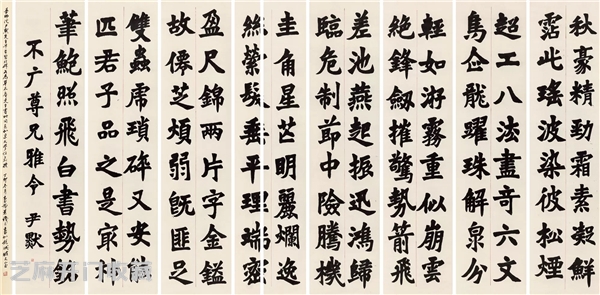 秋豪精勁霜素凝鮮
霑此瑤波染彼松煙
超工八法盡奇六文
鳥企龍躍珠解泉分
輕如游霧重似崩雲
絕鋒劍摧驚勢箭飛
差池燕起振迅鴻歸
臨危制節中險騰機
圭角星芒明麗爛逸
絲縈髮垂平理端密
盈尺錦兩片字金鎰
故僊芝煩弱既匪足
雙蟲虎瑣碎又安能
匹君子品之是冣神
筆鮑照飛白書勢銘
不广尊兄雅令 尹默
芝麻开门收藏